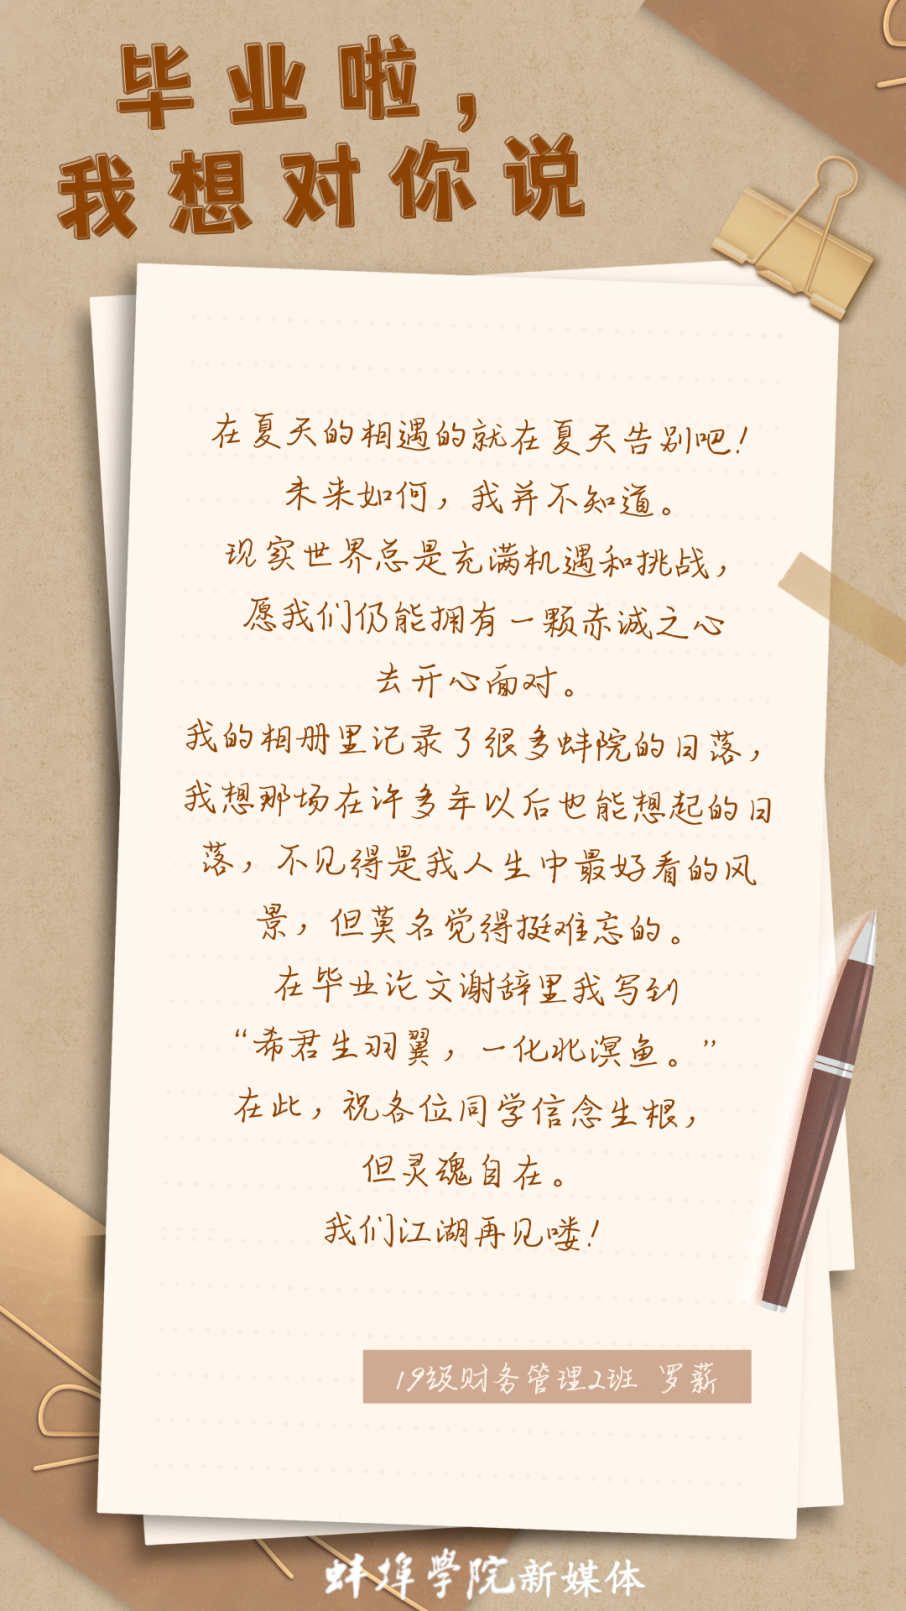 毕业啦，
我想对你说
在夏天的相遇的就在夏天告别吧！
未来如何，我并不知道。
现实世界总是充满机遇和挑战，
愿我们仍能拥有一颗赤诚之心
去开心面对。
我的相册里记录了很多蚌院的日落，
我想那场在许多年以后也能想起的日
落，不见得是我人生中最好看的风
景，但莫名觉得挺难忘的。
在毕业论文谢辞里我写到
“希君生羽翼，一化北溟鱼。”
在此，祝各位同学信念生根，
但灵魂自在。
我们江湖再见喽！
19级财务管理2班 罗薪
蚌埠学院新媒体